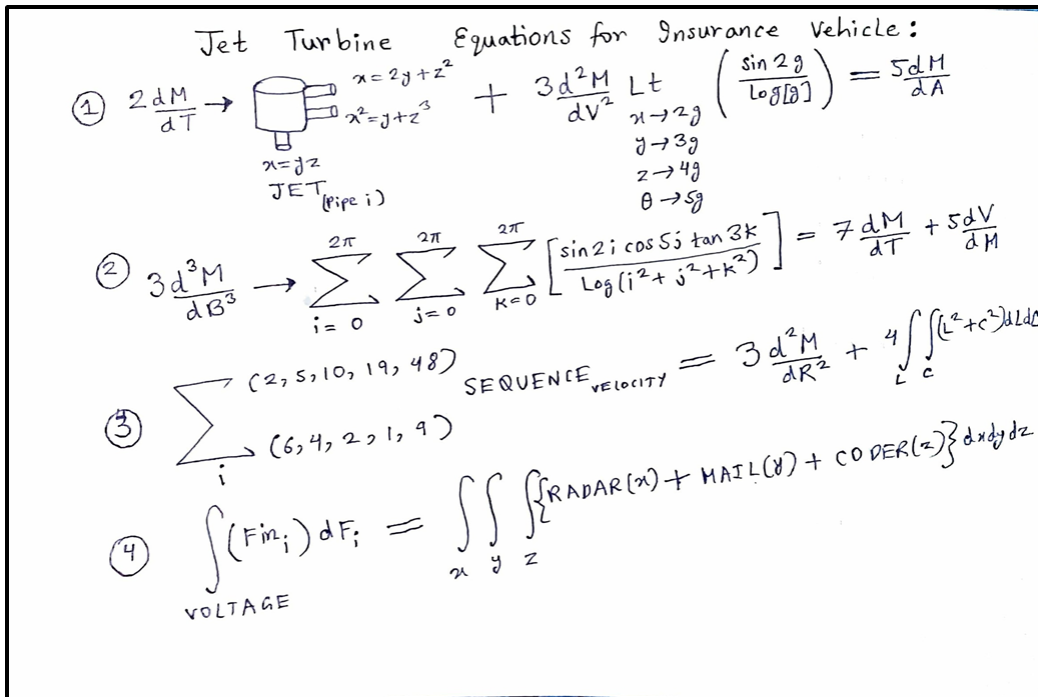 Jet Turbine Equations for Insurance Vehicle:
① 2 dM/dT → x = 2y + z² x² = y + z³ + 3 d²M/dV² Lt ( sin 2g / Log[g] ) = 5 dM/dA
x → 2g
y → 3g
z → 4g
θ → 5g
x = yz
JET (Pipe i)
② 3 d³M/dB³ → 2π ∑ i = 0 2π ∑ j = 0 2π ∑ K = 0 [ sin 2i cos 5j tan 3k / Log (i² + j² + k²) ] = 7 dM/dT + 5 dV/dM
③ ∑ i → (2, 5, 10, 19, 48) → (6, 4, 2, 1, 9) SEQUENCE VELOCITY = 3 d²M/dR² + 4 ∫ L ∫ C (L² + C²) dL dC
④ ∫ VOLTAGE (Fin i) dF i = ∫ x ∫ y ∫ z {RADAR(x) + MAIL(y) + CODER(z)} dx dy dz